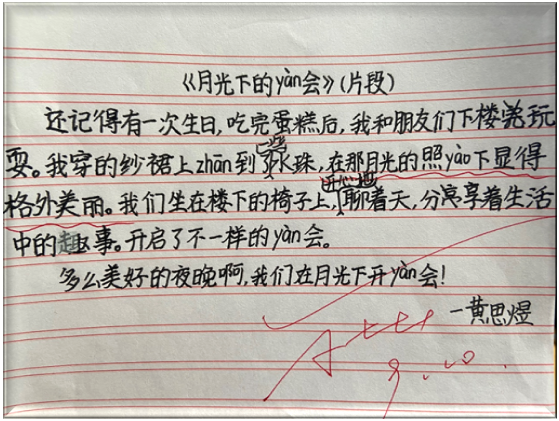 《月光下的yàn会》(片段)
还记得有一次生日,吃完蛋糕后,我和朋友们下楼去玩
耍。我穿的纱裙上zhān到一些水珠,在那月光的照yào下显得
格外美丽。我们坐在楼下的椅子上,开心地聊着天,分享着生活
中的趣事。开启了不一样的yàn会。
多么美好的夜晚啊,我们在月光下开yàn会!
—黄思煜
A+++
9.10.